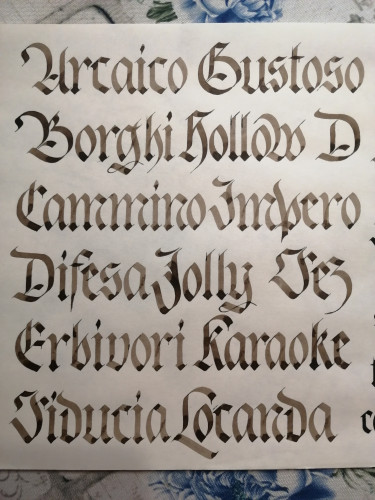 Arcaico Gustoso
Borghi Hollow D
Cammino Impero
Difesa Jolly Fez
Erbivori Karaoke
Fiducia Locanda